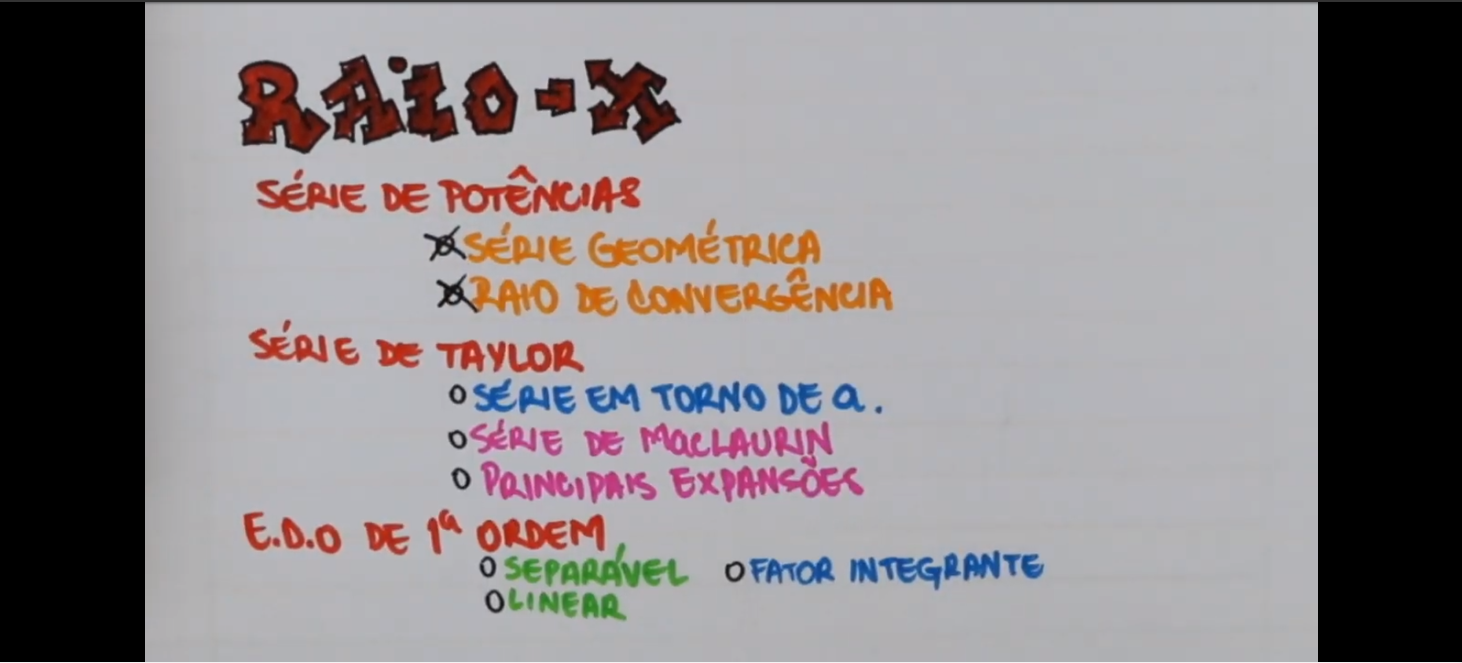 RAIO-X
SÉRIE DE POTÊNCIAS
SÉRIE GEOMÉTRICA
RAIO DE CONVERGÊNCIA
SÉRIE DE TAYLOR
SÉRIE EM TORNO DE a.
SÉRIE DE MaCLAURIN
PRINCIPAIS EXPANSÕES
E.D.O DE 1ª ORDEM
SEPARÁVEL FATOR INTEGRANTE
LINEAR